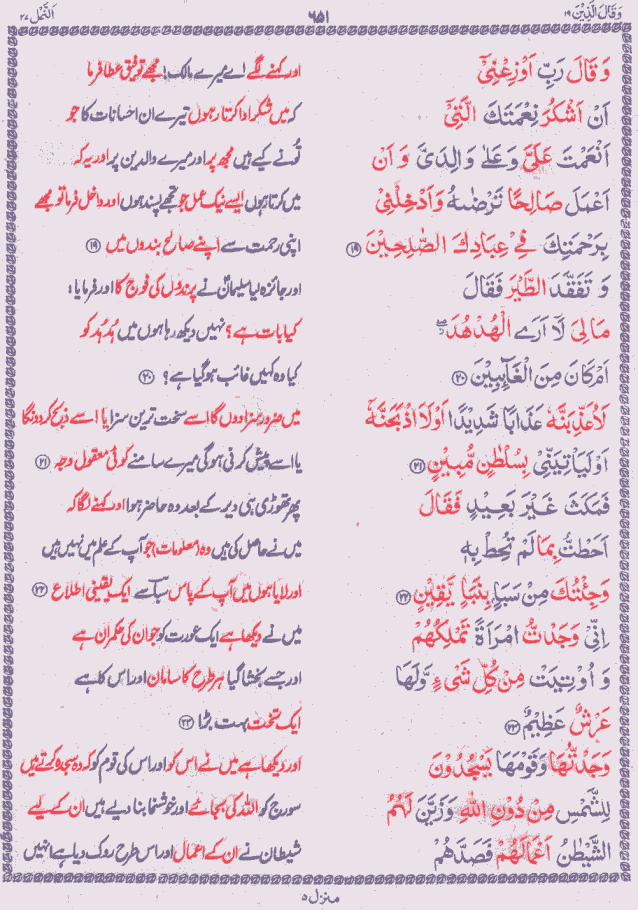 وَقَالَ الَّذِيْنَ ۱۹ ۶۵۱ اَلنَّمْل ۲۷
وَقَالَ رَبِّ اَوْزِعْنِيْٓ اور کہنے لگے اے میرے مالک! مجھے توفیق عطا فرما
اَنْ اَشْكُرَ نِعْمَتَكَ الَّتِيْٓ کہ میں شکر ادا کرتا رہوں تیرے ان احسانات کا جو
اَنْعَمْتَ عَلَيَّ وَعَلٰى وَالِدَيَّ وَاَنْ تُونے کیے ہیں مجھ پر اور میرے والدین پر اور یہ کہ
اَعْمَلَ صَالِحًا تَرْضٰىهُ وَاَدْخِلْنِيْ میں کرتا ہوں ایسے نیک عمل جو تجھے پسند ہوں اور داخل فرما تو مجھے
بِرَحْمَتِكَ فِيْ عِبَادِكَ الصّٰلِحِيْنَ ۱۹ اپنی رحمت سے اپنے صالح بندوں میں ۱۹
وَتَفَقَّدَ الطَّيْرَ فَقَالَ اور جائزہ لیا سلیمانؑ نے پرندوں کی فوج کا اور فرمایا:
مَا لِيَ لَآ اَرَى الْهُدْهُدَ کیا بات ہے؟ نہیں دیکھ رہا ہوں میں ہُدہُد کو
اَمْ كَانَ مِنَ الْغَآئِبِيْنَ ۲۰ کیا وہ کہیں غائب ہوگیا ہے؟ ۲۰
لَاُعَذِّبَنَّهٗ عَذَابًا شَدِيْدًا اَوْ لَاَاذْبَحَنَّهٗٓ میں ضرور سزا دوں گا اسے سخت ترین سزا یا اسے ذبح کردونگا
اَوْ لَيَاْتِيَنِّيْ بِسُلْطٰنٍ مُّبِيْنٍ ۲۱ یا اسے پیش کرنی ہوگی میرے سامنے کوئی معقول وجہ ۲۱
فَمَكَثَ غَيْرَ بَعِيْدٍ فَقَالَ پھر تھوڑی ہی دیر کے بعد وہ حاضر ہوا اور کہنے لگا کہ
اَحَطْتُّ بِمَا لَمْ تُحِطْ بِهٖ میں نے حاصل کی ہیں وہ (معلومات) جو آپ کے علم میں نہیں ہیں
وَجِئْتُكَ مِنْ سَبَاٍۭ بِنَبَاٍ يَّقِيْنٍ ۲۲ اور لایا ہوں میں آپ کے پاس سبأ سے ایک یقینی اطلاع ۲۲
اِنِّيْ وَجَدْتُّ امْرَاَةً تَمْلِكُهُمْ میں نے دیکھا ہے ایک عورت کو جو ان کی حکمران ہے
وَاُوْتِيَتْ مِنْ كُلِّ شَيْءٍ وَّلَهَا اور جسے بخشا گیا ہر طرح کا سامان اور اس کا ہے
عَرْشٌ عَظِيْمٌ ۲۳ ایک تخت بہت بڑا ۲۳
وَجَدْتُّهَا وَقَوْمَهَا يَسْجُدُوْنَ اور دیکھا ہے میں نے اس کو اور اس کی قوم کو کہ وہ سجدہ کرتے ہیں
لِلشَّمْسِ مِنْ دُوْنِ اللّٰهِ وَزَيَّنَ لَهُمُ سورج کو اللہ کی بجائے اور خوشنما بنا دیے ہیں ان کے لیے
الشَّيْطٰنُ اَعْمَالَهُمْ فَصَدَّهُمْ شیطان نے ان کے اعمال اور اس طرح روک دیا ہے انہیں
منزل ۵